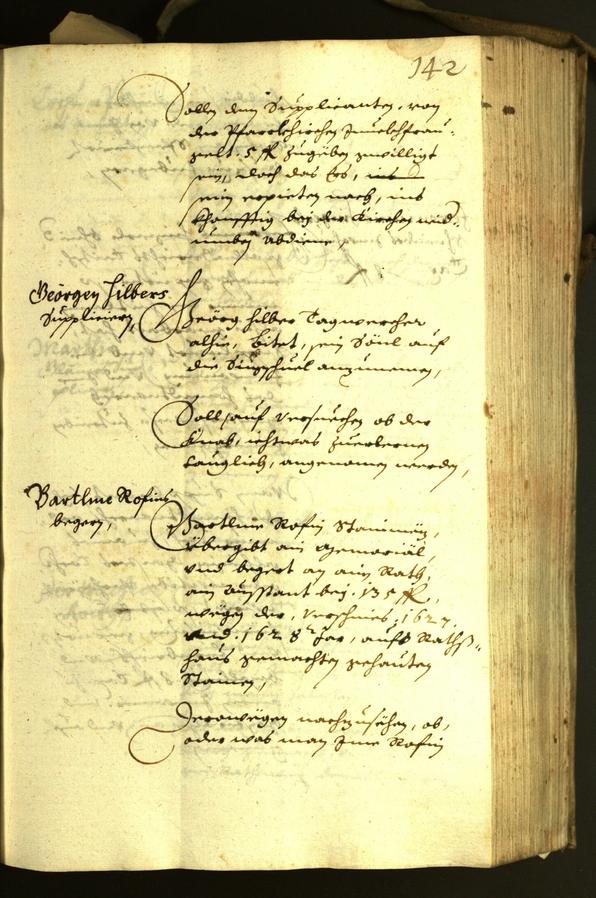 142
Sollen dem Supplicanten, von
der Pfarrkhirchen Inuelchfrau-
zelt. 5 fl zugeben zwilligt
sein, doch das Er,
sein erpieten nach, ins
khonfftig bej der Kirchen wid-
umben abdiene,
Geörgen Hilbers
Supplicieren,
Geörg Hilber Tagwercher
alhie, Bitet, sein Sönl auf
die Singschuel anzunemen,
Soll, auf versuechen ob der
Knab, ichtwas zuerlernen
tauglich, angenomen werden,
Bartlme Rofins
begern,
Bartlme Rofin Stainmez,
übergibt ain Memorial,
vnd begert an ain Rath,
ain Ausstant bej. 135 fl,
wegen der, verschines, 1627,
vnd. 1628 Jar, aufs Raths-
haus gemachten gehauten
Stainen,
Derowegen nachzusehen, ob,
oder was man Ime Rofin